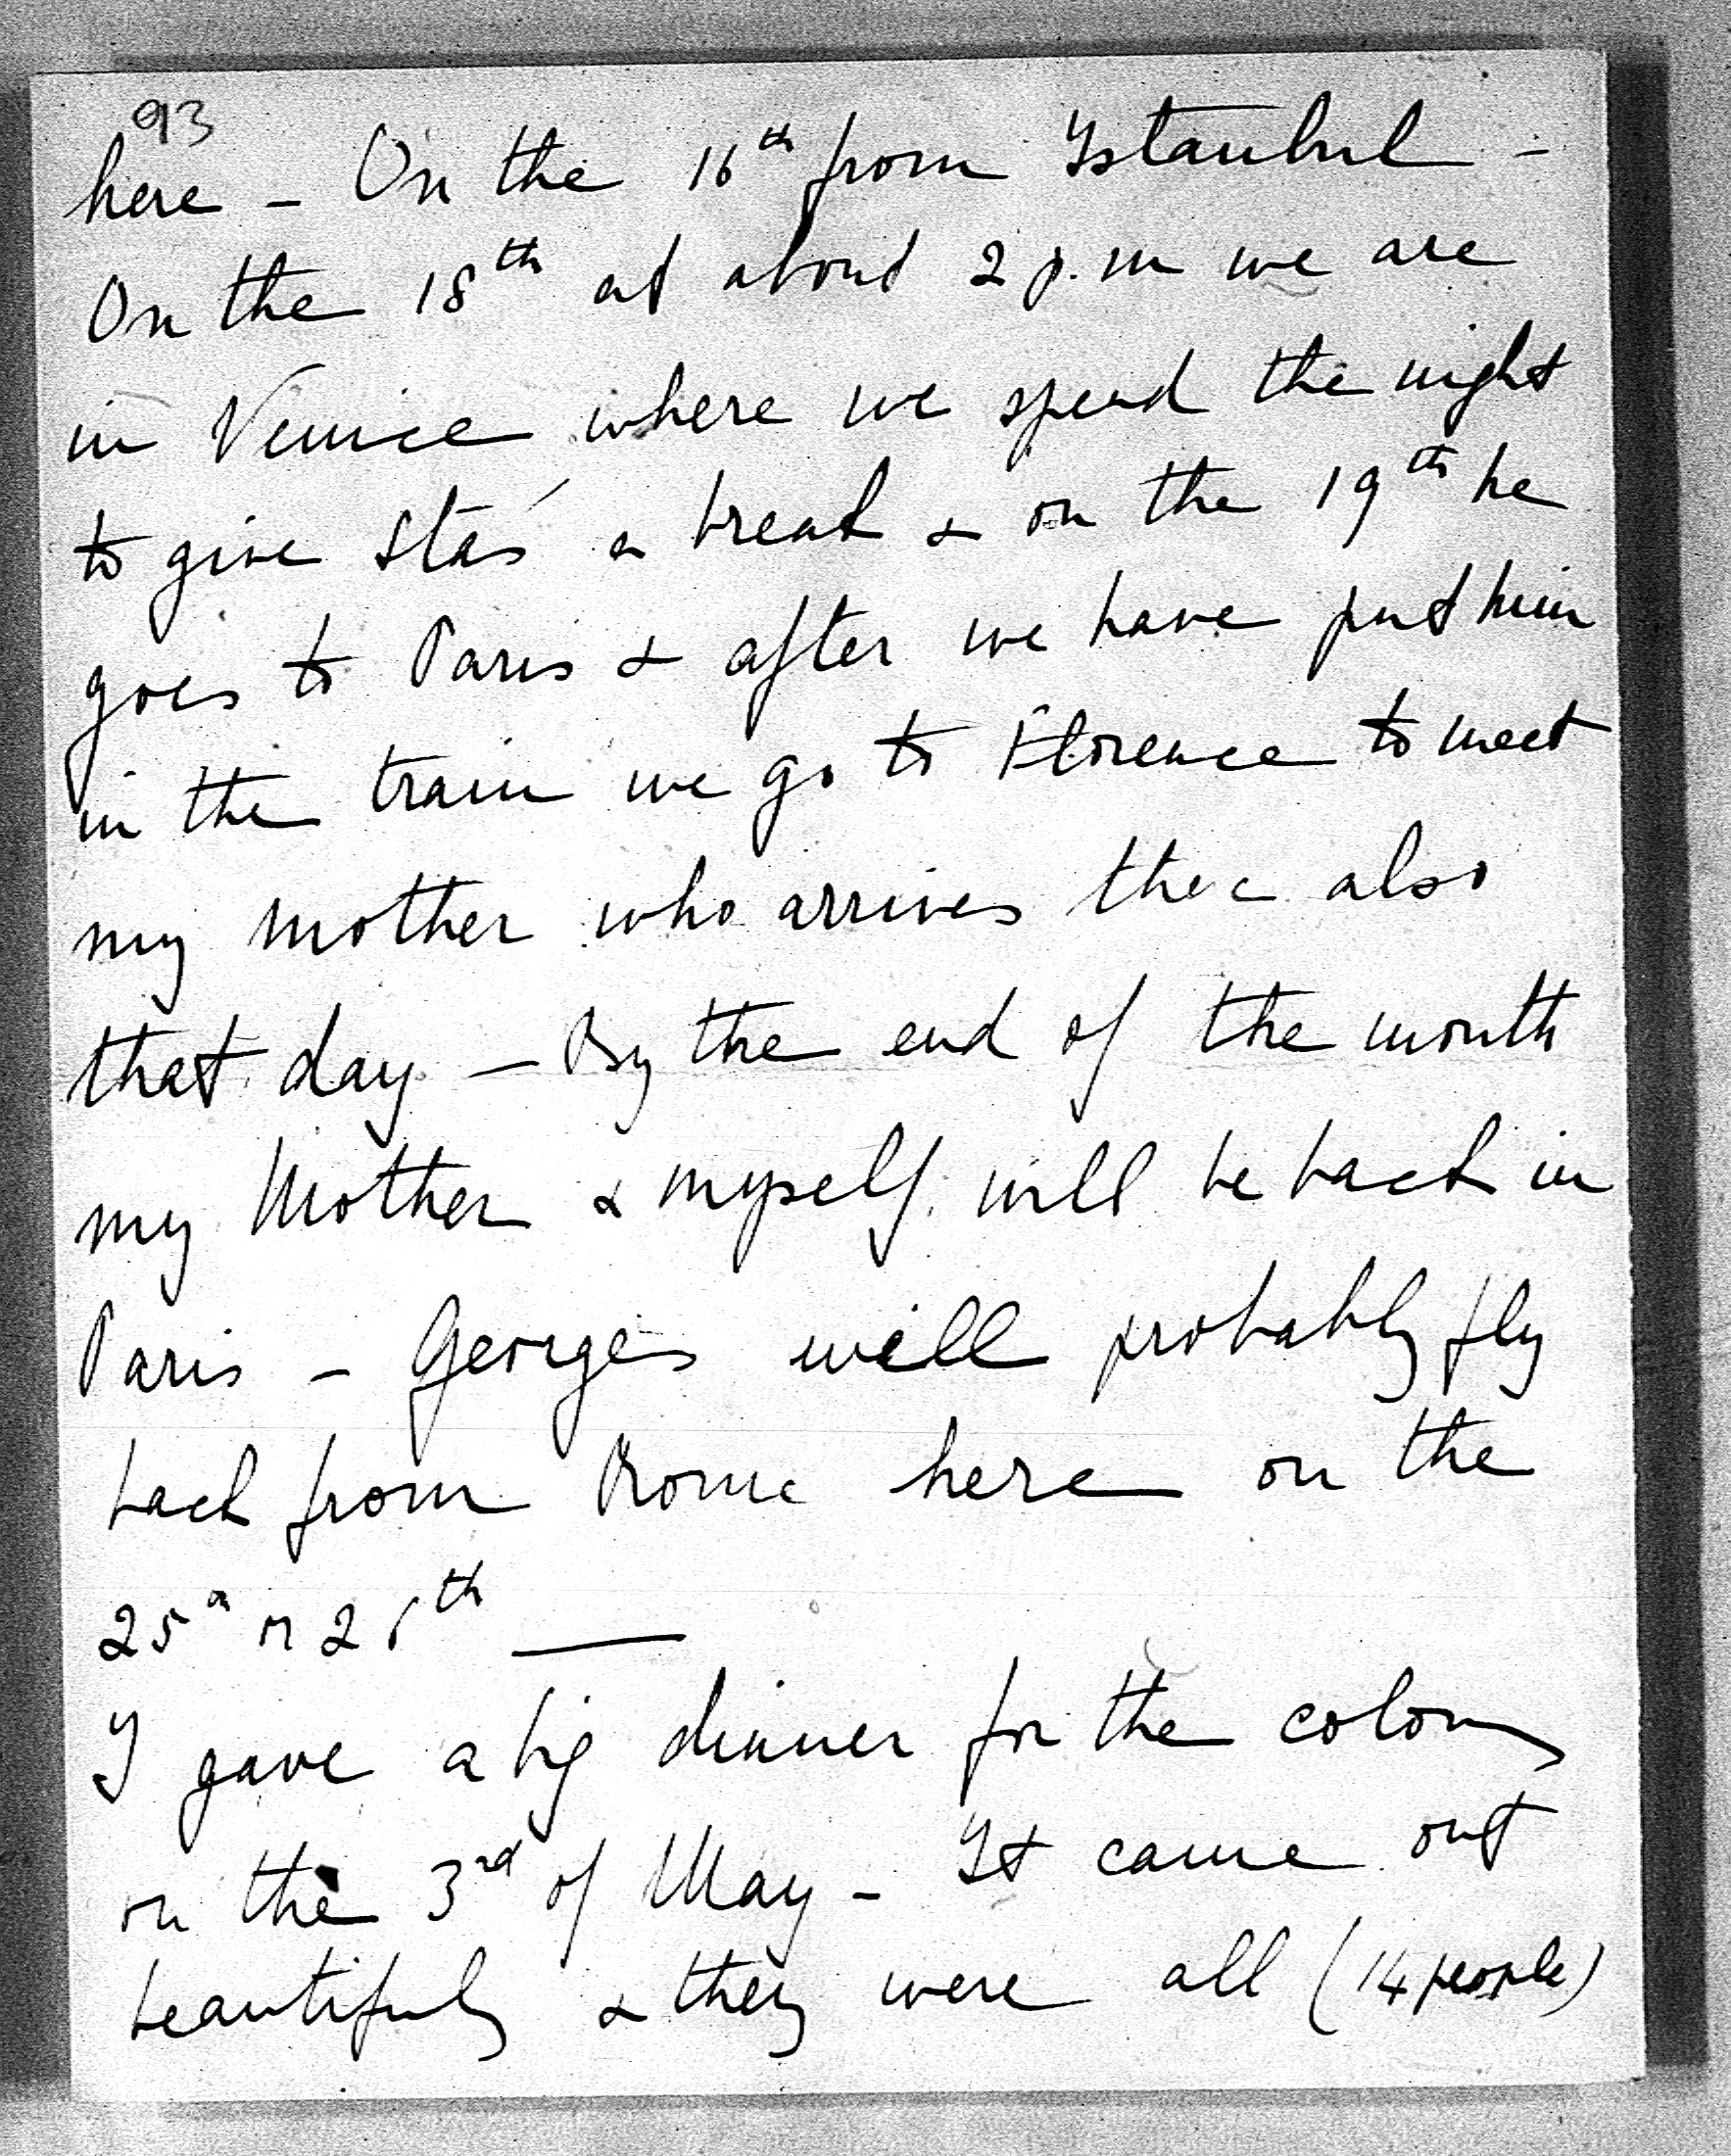 93
here - On the 16th from Istanbul -
On the 18th at about 2 p.m we are
in Venice where we spend the night
to give Stás a break & on the 19th he
goes to Paris & after we have put him
in the train we go to Florence to meet
my mother who arrives there also
that day - By the end of the month
my Mother & myself will be back in
Paris - Georges will probably fly
back from Rome here on the
25th or 26th —
I gave a big dinner for the colony
on the 3rd of May - It came out
beautifuly & they were all (14 people)